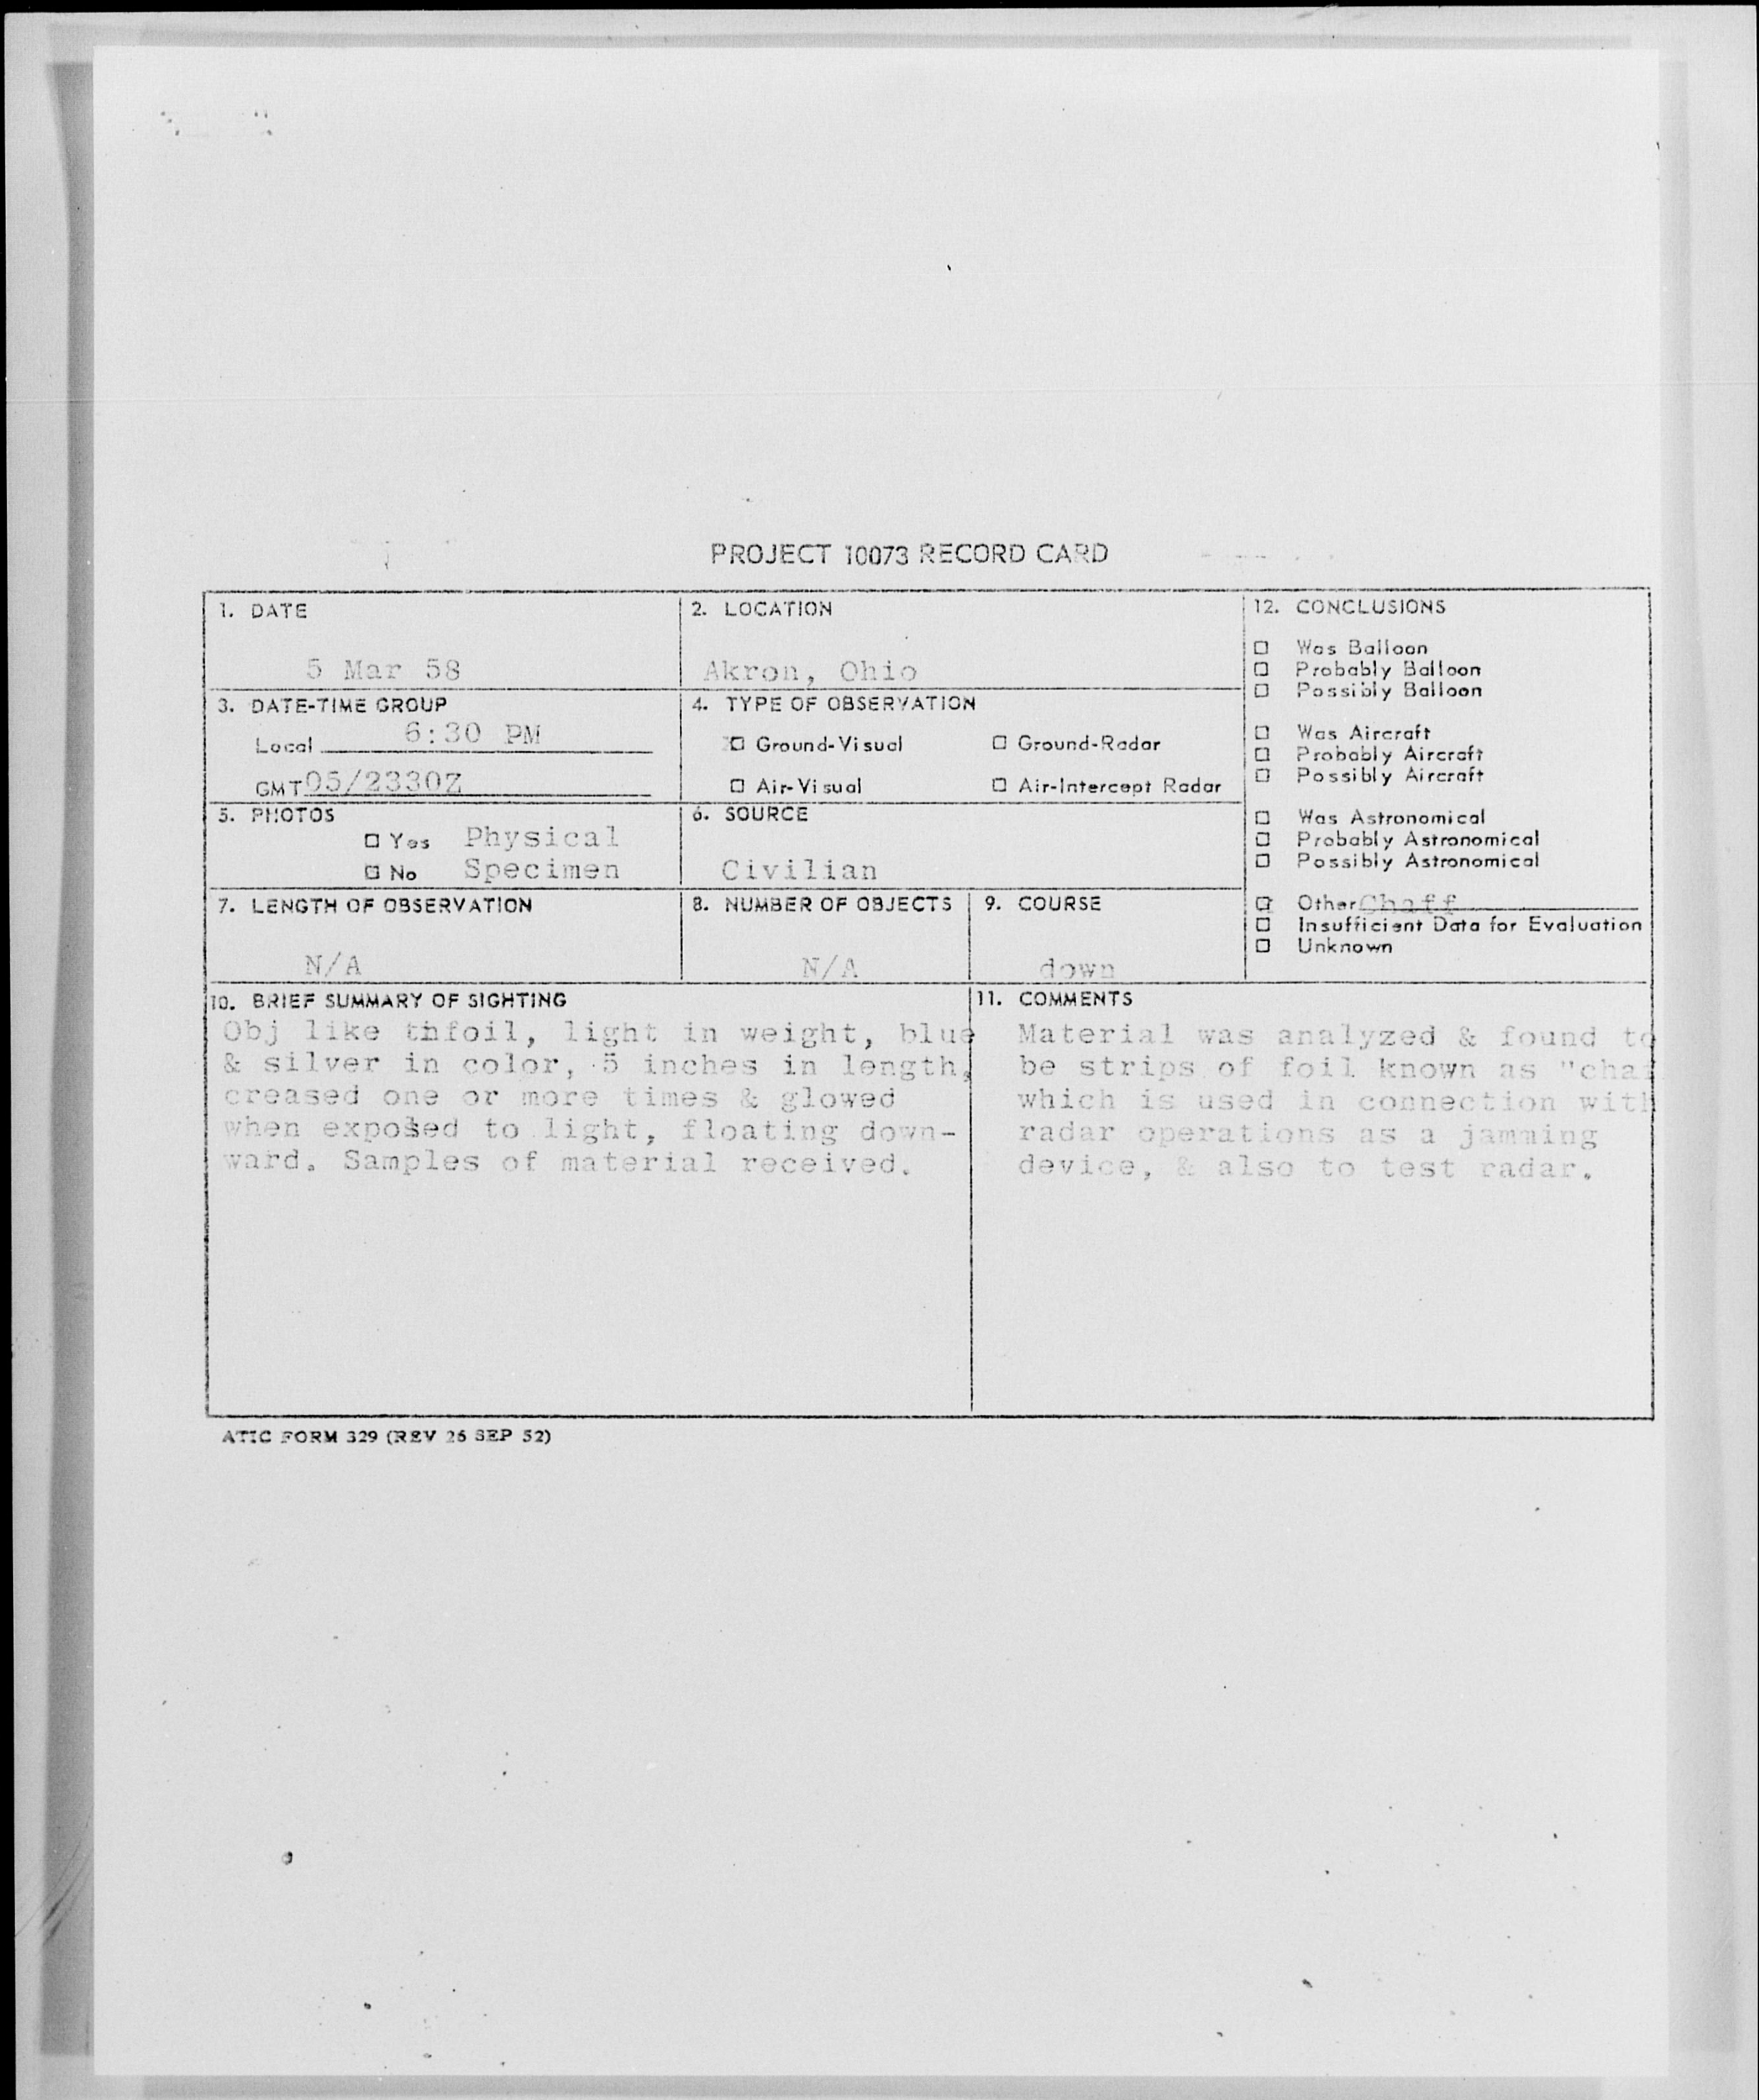 PROJECT 10073 RECORD CARD
1. DATE
5 Mar 58
2. LOCATION
Akron, Ohio
3. DATE-TIME GROUP
Local 6:30 PM
GMT 05/2330Z
4. TYPE OF OBSERVATION
☒ Ground-Visual ☐ Ground-Radar
☐ Air-Visual ☐ Air-Intercept Radar
5. PHOTOS
☐ Yes Physical
☒ No Specimen
6. SOURCE
Civilian
7. LENGTH OF OBSERVATION
N/A
8. NUMBER OF OBJECTS
N/A
9. COURSE
down
10. BRIEF SUMMARY OF SIGHTING
Obj like tnfoil, light in weight, blue
& silver in color, 5 inches in length,
creased one or more times & glowed
when exposed to light, floating down-
ward. Samples of material received.
11. COMMENTS
Material was analyzed & found to
be strips of foil known as "chaf
which is used in connection with
radar operations as a jamming
device, & also to test radar.
12. CONCLUSIONS
☐ Was Balloon
☐ Probably Balloon
☐ Possibly Balloon
☐ Was Aircraft
☐ Probably Aircraft
☐ Possibly Aircraft
☐ Was Astronomical
☐ Probably Astronomical
☐ Possibly Astronomical
☒ Other Chaff
☐ Insufficient Data for Evaluation
☐ Unknown
ATIC FORM 329 (REV 26 SEP 52)